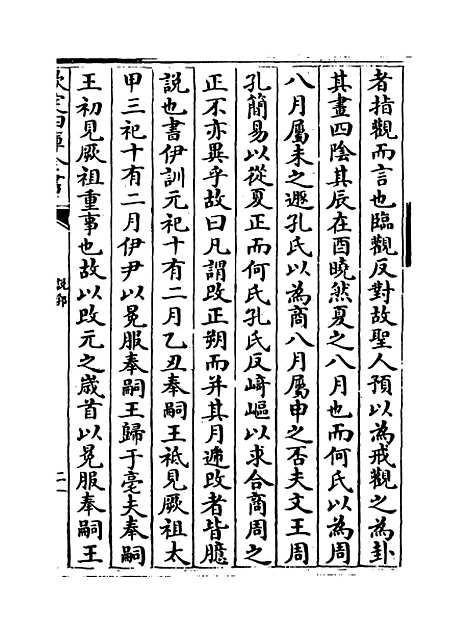 者指觀而言也臨觀反對故聖人預以為戒觀之為卦
其畫四陰其辰在酉曉然夏之八月也而何氏以為周
八月屬未之遯孔氏以為商八月屬申之否夫文王周
孔簡易以從夏正而何氏孔氏反﨑嶇以求合商周之
正不亦異乎故曰凡謂改正朔而并其月遞改者皆臆
說也書伊訓元祀十有二月乙丑奉嗣王祗見厥祖太
甲三祀十有二月伊尹以冕服奉嗣王歸于亳夫奉嗣
王初見厥祖重事也故以改元之歲首以冕服奉嗣王
欽定四庫全書
說郛